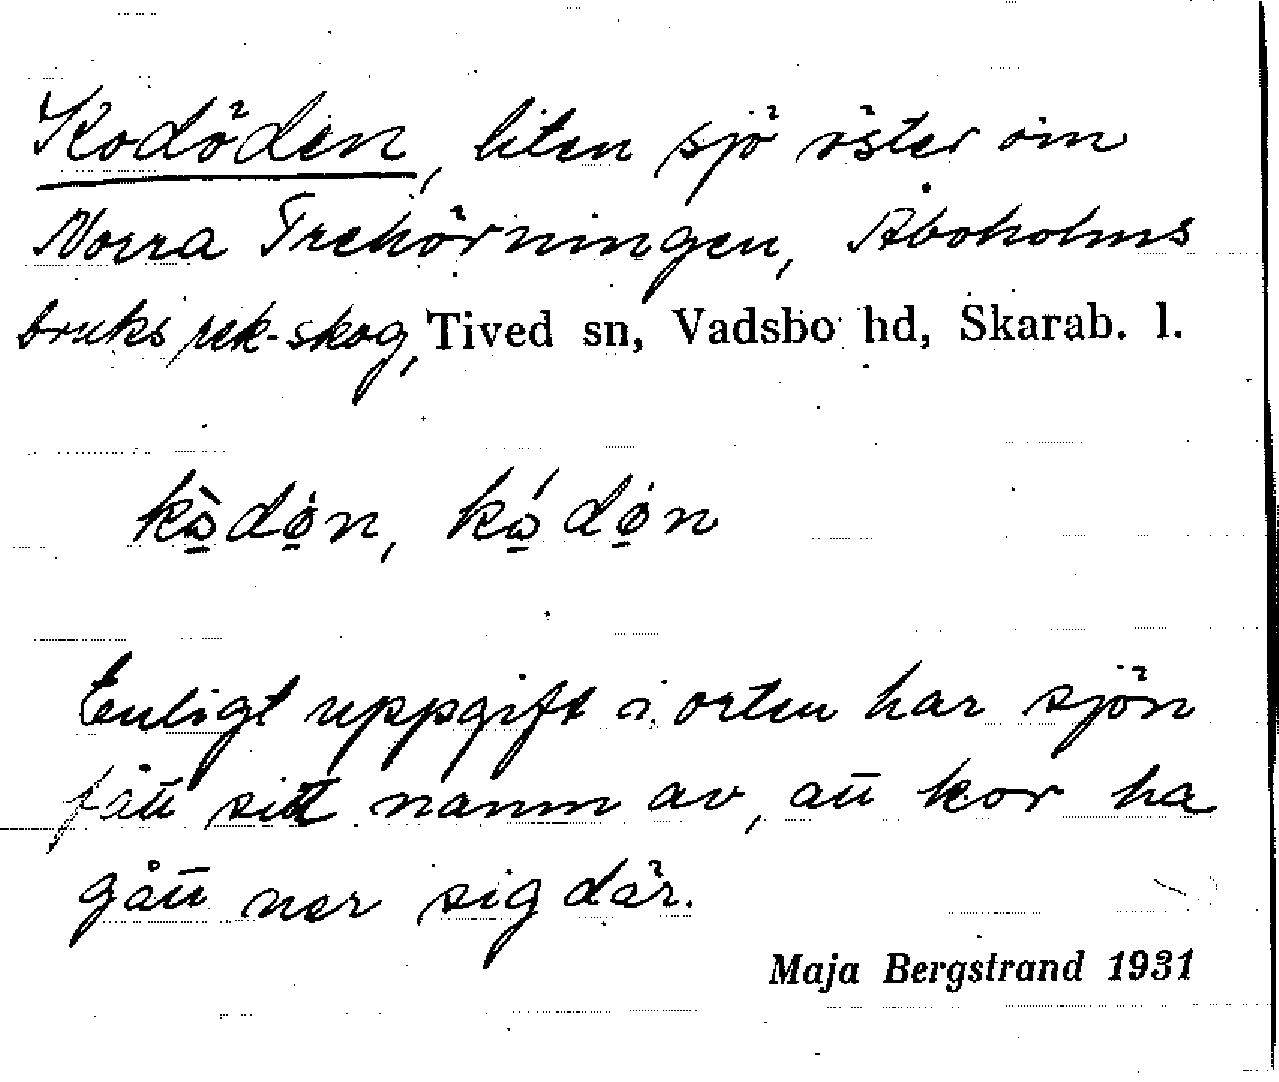 Kodöden, liten sjö öster om
Norra Trehörningen, Åboholms
bruks rek-skog, Tived sn, Vadsbo hd, Skarab. l.
kò̱dø̱n, kó̱dø̱n
Enligt uppgift i orten har sjön
fått sitt namn av, att kor ha
gått ner sig där.
Maja Bergstrand 1931